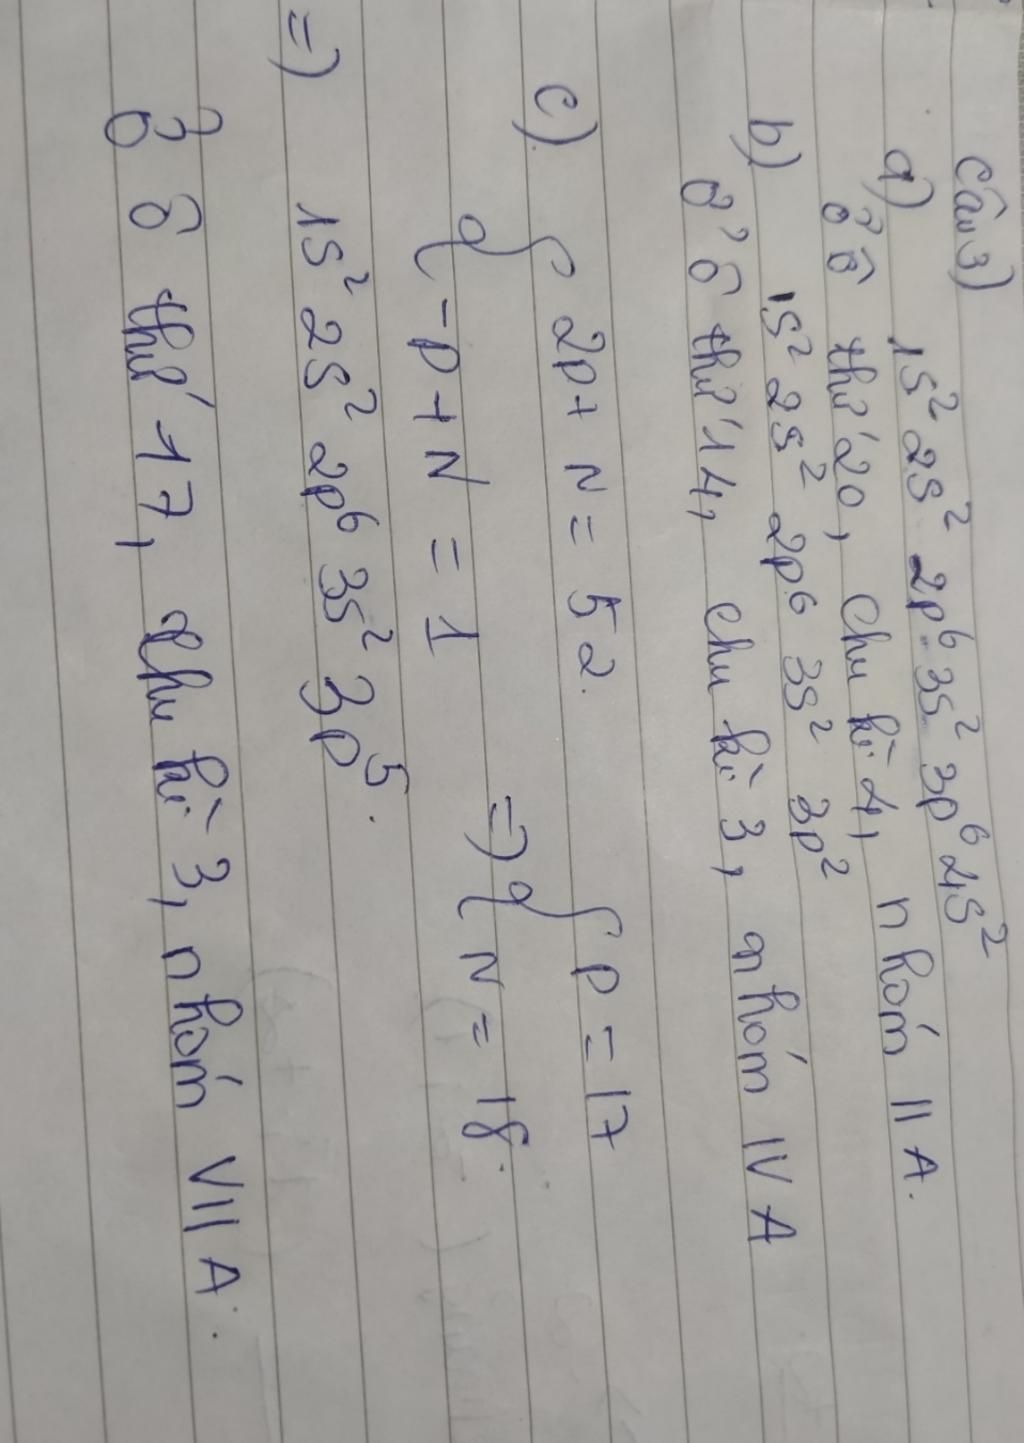 Câu 3)
a) 1s² 2s² 2p⁶ 3s² 3p⁶ 4s²
ở ô thứ 20, chu kì 4, nhóm IIA.
b) 1s² 2s² 2p⁶ 3s² 3p²
ở ô thứ 14, chu kì 3, nhóm IVA
c) { 2p + N = 52.
{ -p + N = 1
=> { p = 17
{ N = 18.
=> 1s² 2s² 2p⁶ 3s² 3p⁵.
ở ô thứ 17, chu kì 3, nhóm VIIA.